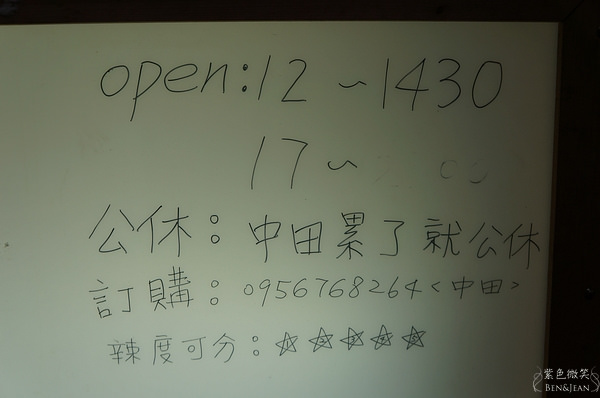 open:12 ~1430
17~
公休：中田累了就公休
訂購：0956768264<中田>
辣度可分：☆☆☆☆☆
紫色微笑
BEN&JEAN